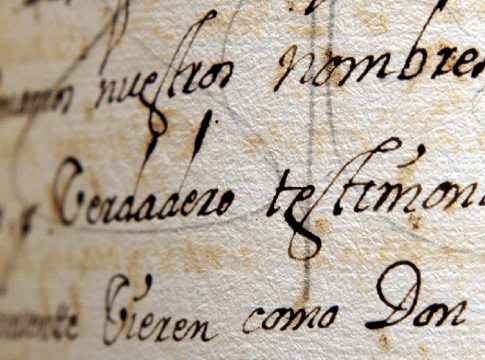 nuestros nombres
y Verdadero testimoni
Vieren como Don